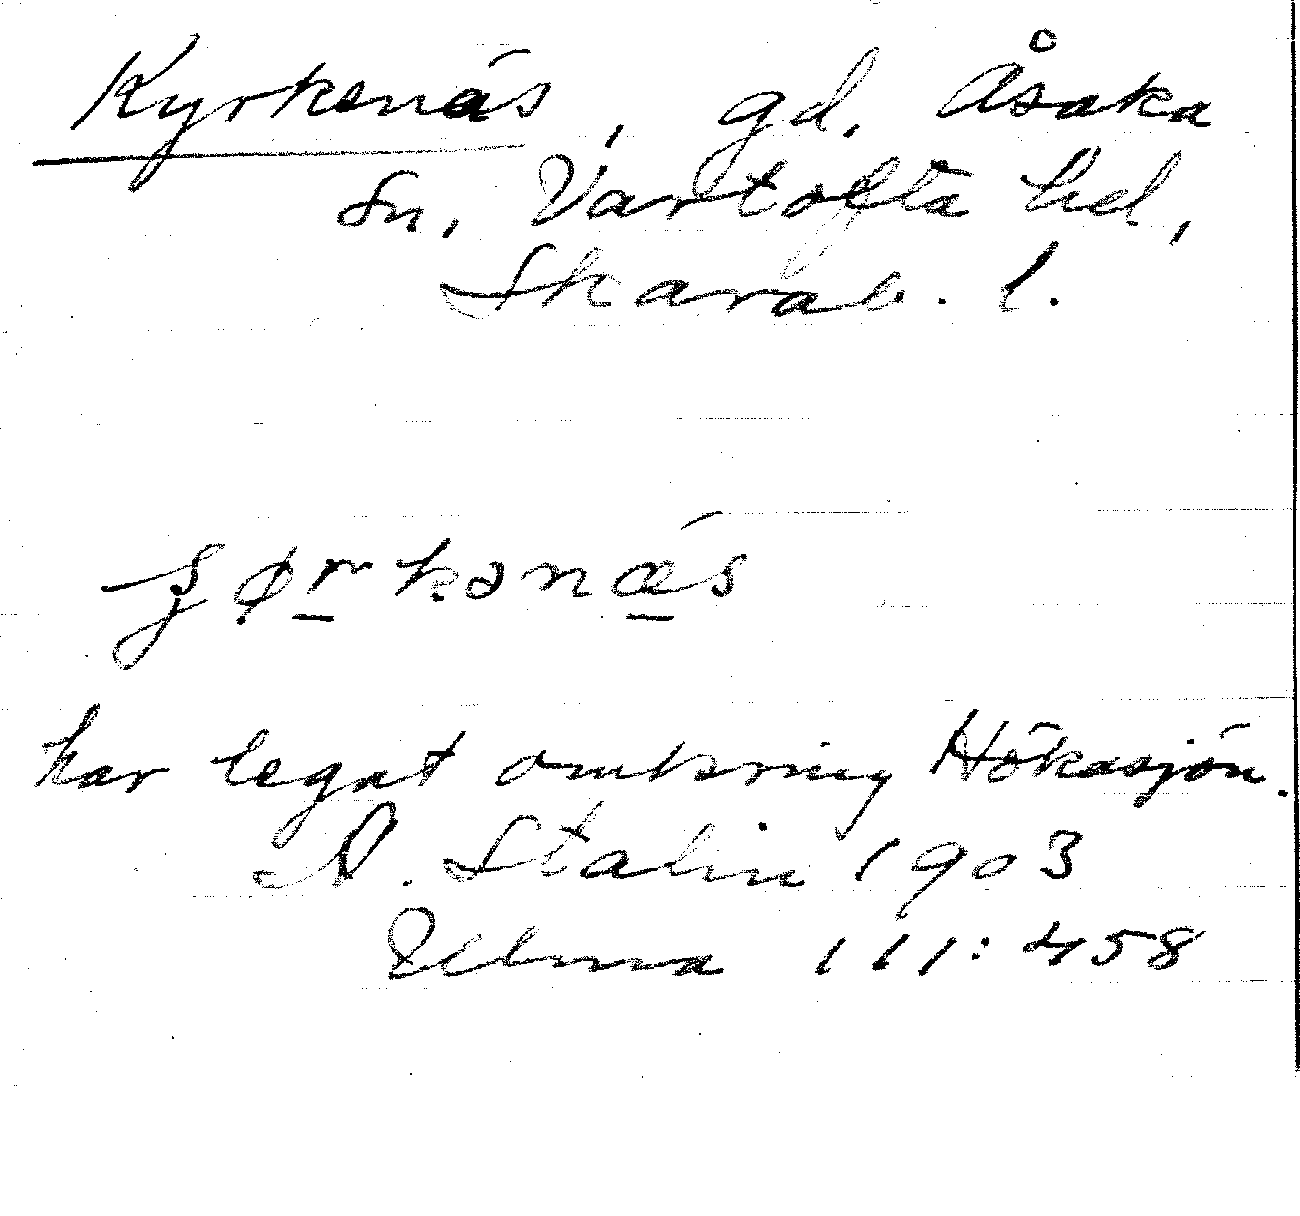 Kyrkenäs, gd. Åsaka
sn, Vartofta hd,
Skarab. l.
har legat omkring Hökasjön.
A. Stalin 1903
Ulma 111:458